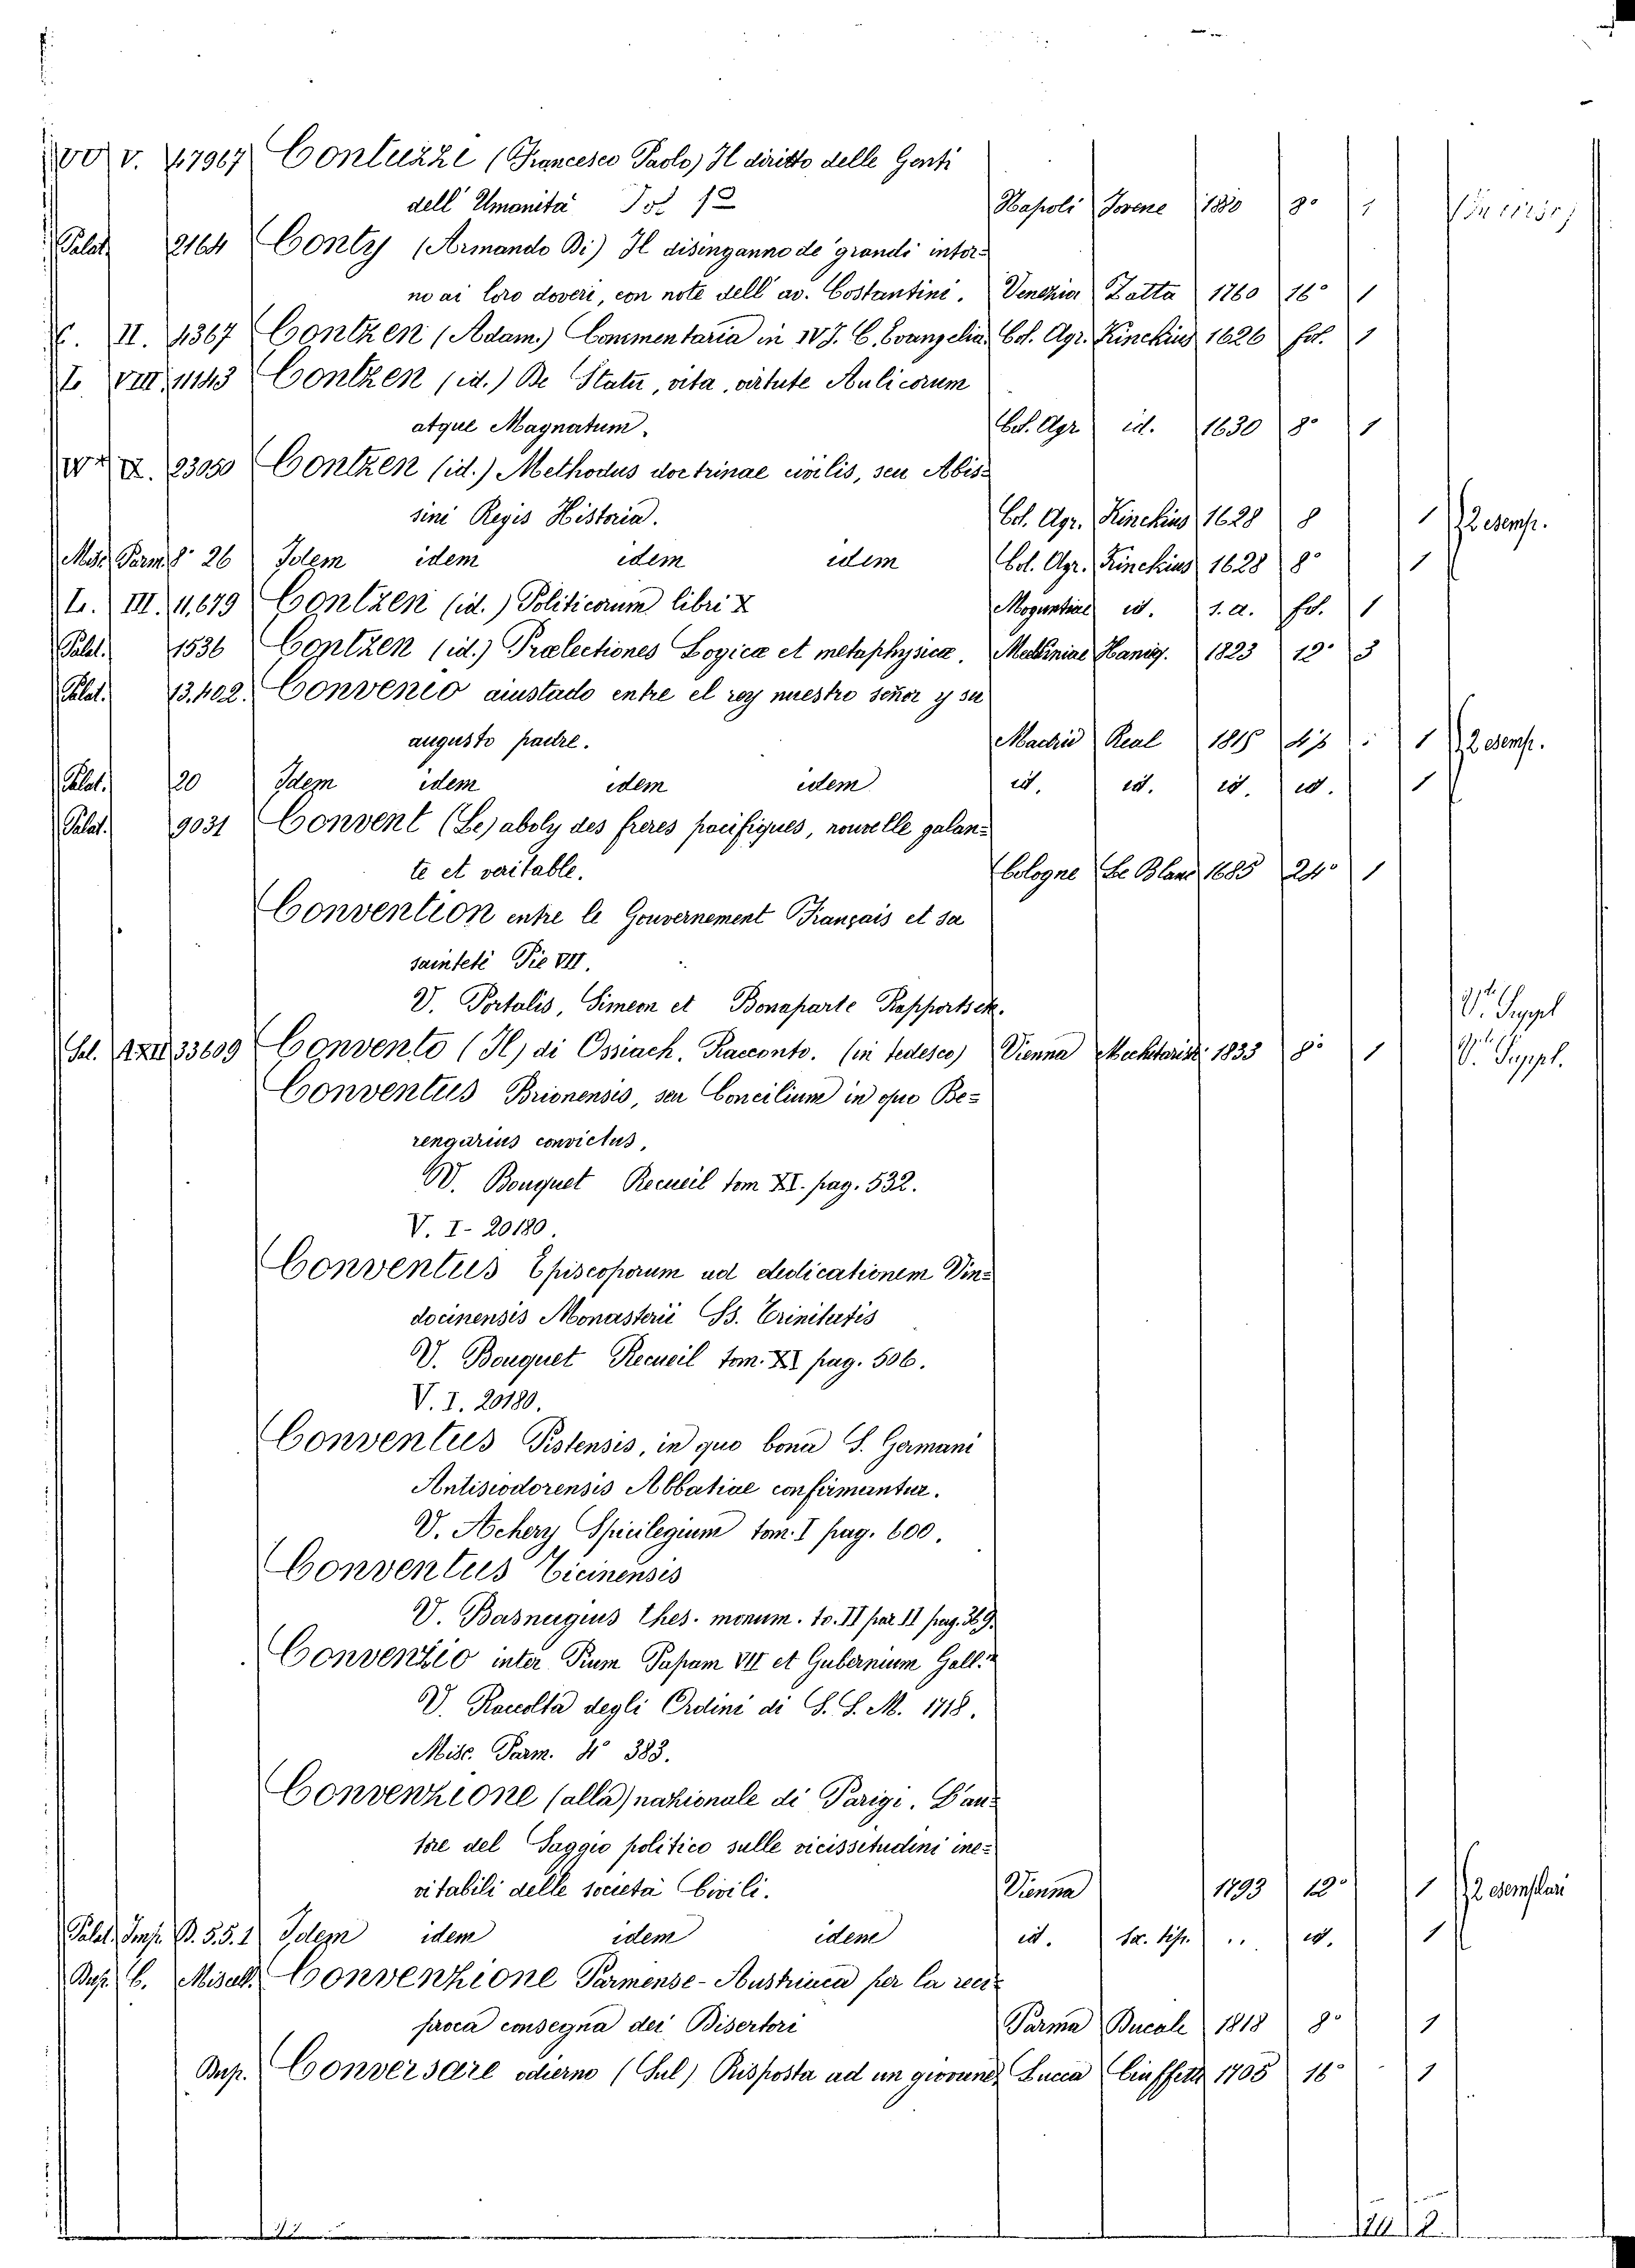 V. 47967 Contuzzi (Francesco Paolo) Il diritto delle Genti
dell' Umanità Vol. 1º Napoli Jovene 1880 8º 1
Palat. 2164 Conty (Armando Di) Il disinganno de' grandi intor=
no ai loro doveri, con note dell' av. Costantini. Venezia Zatta 1760 16º 1
C. II. 4367 Contzen (Adam.) Commentaria in IV J. C. Evangelia. Col. Agr. Kinckius 1626 fol. 1
L. VIII. 11143 Contzen (id.) De Statu, vita, virtute Aulicorum
atque Magnatum. Col. Agr. id. 1630 8º 1
X. 23050 Contzen (id.) Methodus doctrinae civilis, seu Abis=
sini Regis Historia. Col. Agr. Kinckius 1628 8 1 2 esemp.
Misc. Parm. 8º 26 Idem idem idem idem Col. Agr. Kinckius 1628 8º 1
L. III. 11,679 Contzen (id.) Politicorum libri X Moguntiae id. s. a. fol. 1
Palat. 1536 Contzen (id.) Prælectiones Logicæ et metaphysicæ. Mechliniae Haniq. 1823 12º 3
Palat. 13.402. Convenio aiustado entre el rey nuestro señor y su
augusto padre. Madrid Real 1815 4º 1 2 esemp.
Palat. 20 Idem idem idem idem id. id. id. id. 1
Palat. 9031 Convent (Le) aboly des freres pacifiques, nouvelle galan=
te et veritable. Cologne Le Blanc 1685 24º 1
Convention entre le Gouvernement Français et sa
sainteté Pie VII.
V. Portalis, Simeon et Bonaparte Rapports etc. V. Suppl
Sal. XXII 33609 Convento (Il) di Ossiach. Racconto. (in tedesco) Vienna Mechitarist. 1833 8º 1 V. Suppl.
Conventus Brionensis, seu Concilium in quo Be=
rengarius convictus,
V. Bouquet Recueil tom XI. pag. 532.
V. I- 20180.
Conventus Episcoporum ad dedicationem Vin=
docinensis Monasterii SS. Trinitatis
V. Bouquet Recueil tom. XI pag. 506.
V. I. 20180.
Conventus Pistensis, in quo bona S. Germani
Antisiodorensis Abbatiae confirmantur.
V. Achery Spicilegium tom. I pag. 600.
Conventus Ticinensis
V. Basnagius Thes. monum. to. II par II pag. 369.
Conventio inter Pium Papam VII et Gubernium Gall.
V. Raccolta degli Ordini di S. S. M. 1718.
Misc. Parm. 4º 383.
Convenzione (alla) nazionale di Parigi. L'au=
tore del Saggio politico sulle vicissitudini ine=
vitabili delle società Civili. Vienna 1793 12º 1 2 esemplari
Palat. Imp. B. 5.5.1 Idem idem idem idem id. s.a. tip. .. id. 1
Dup. C. Miscell. Convenzione Parmense-Austriaca per la reci=
proca consegna dei Disertori Parma Ducale 1818 8º 1
Dup. Conversare odierno (Sul) Risposta ad un giovane Lucca Ciuffetti 1705 16º 1